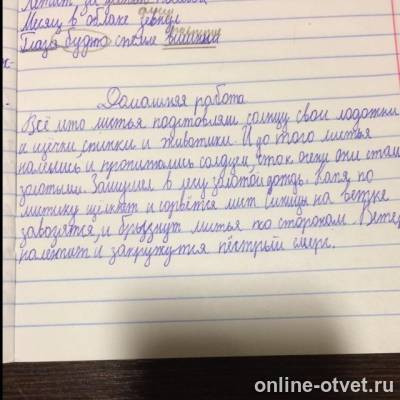 Месяц в облаке
Глаза будто спелые вишенки
Домашняя работа
Всё лето листья подставляли солнцу свои ладошки
и щёчки, спинки и животики. И до того листья
налились и пропитались солнцем, что к осени они стали
золотыми. Зашумел в лесу золотой дождь. Капля по
листику щёлкнет и сорвётся лист. Синицы на ветке
завозятся, и брызнут листья по сторонам. Ветер
налетит и закружится пёстрый смерч.
online-otvet.ru